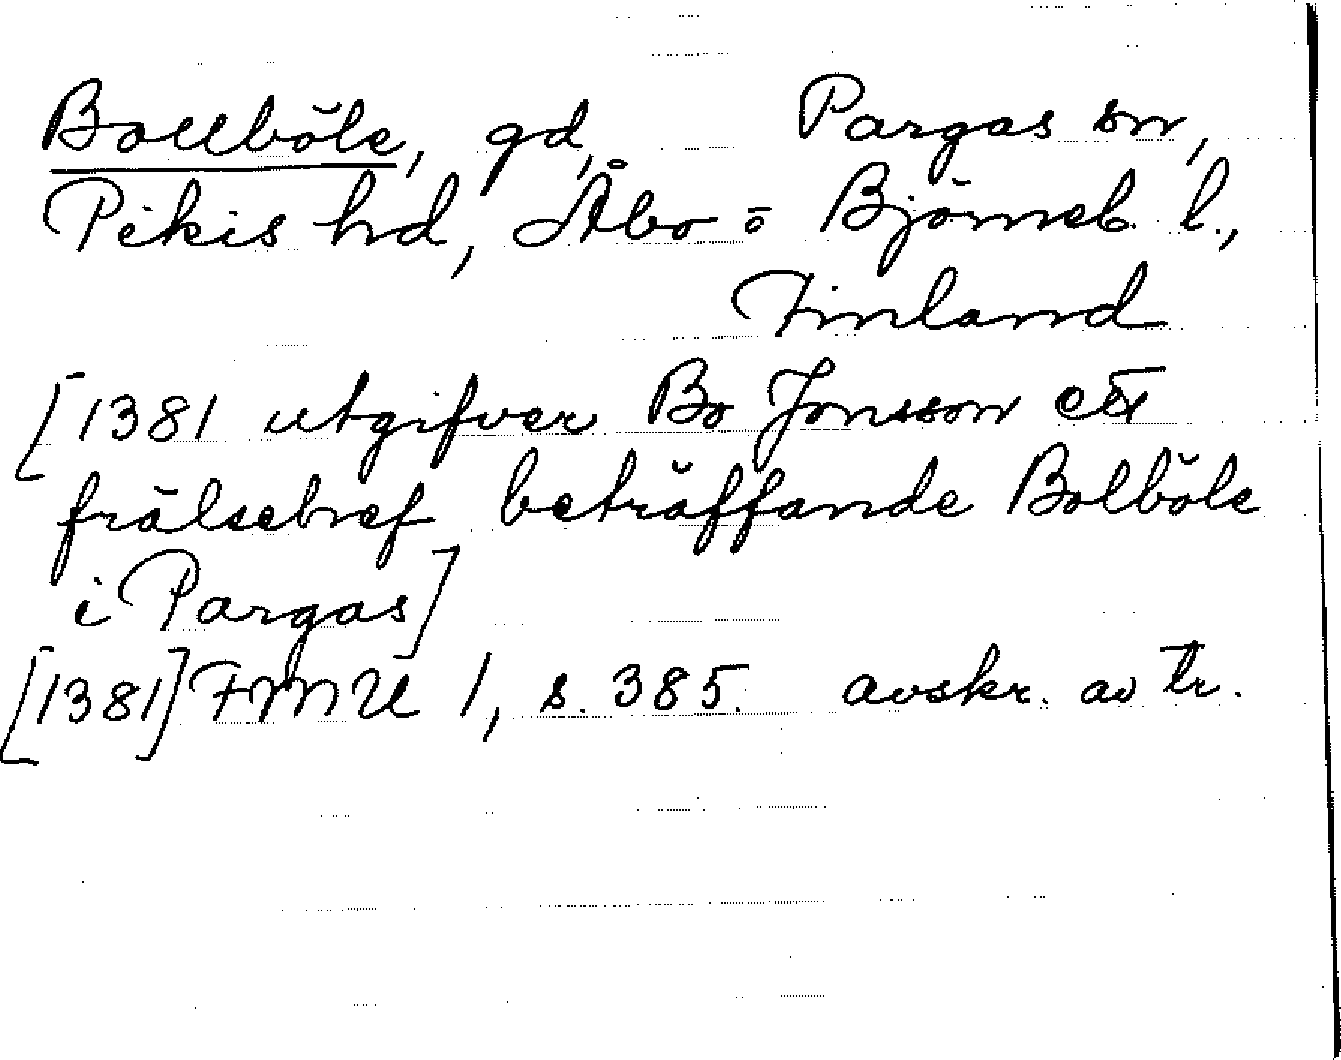 Bollböle, gd, Pargas sn,
Pikis hd, Åbo o Björneb. l.,
Finland
[1381 utgifver Bo Jonsson ett
frälsebref beträffande Bolböle
i Pargas]
[1381] FMU 1, s. 385. avskr. av tr.